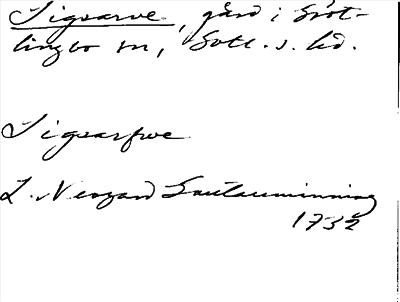 Sigsarve, gård i Gröt-
lingbo sn, Gotl. s. hd.
Sigsarfwe
L. Neogard Gautauminning
1732